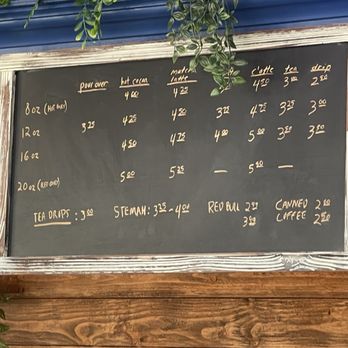 pour over hot cocoa matcha latte c'latte tea drip
8 oz (HOT ONLY) 4 00 4 25 4 50 3 00 2 50
12 oz 3 25 4 25 4 50 3 75 4 75 3 25 3 00
16 oz 4 50 4 75 4 00 5 00 3 50 3 50
20 oz (ICED ONLY) 5 00 5 25 — 5 50 —
TEA DROPS: 3 00 STEMAH: 3 25 - 4 00 RED BULL 2 50 CANNED 2 00
3 50 COFFEE 2 50